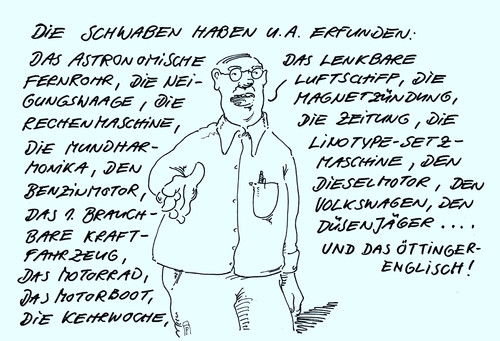 DIE SCHWABEN HABEN U.A. ERFUNDEN:
DAS ASTRONOMISCHE
FERNROHR, DIE NEI-
GUNGSWAAGE, DIE
RECHENMASCHINE,
DIE MUNDHAR-
MONIKA, DEN
BENZINMOTOR,
DAS 1. BRAUCH-
BARE KRAFT-
FAHRZEUG,
DAS MOTORRAD,
DAS MOTORBOOT,
DIE KEHRWOCHE,
DAS LENKBARE
LUFTSCHIFF, DIE
MAGNETZÜNDUNG,
DIE ZEITUNG, DIE
LINOTYPE-SETZ-
MASCHINE, DEN
DIESELMOTOR, DEN
VOLKSWAGEN, DEN
DÜSENJÄGER ....
UND DAS ÖTTINGER-
ENGLISCH!